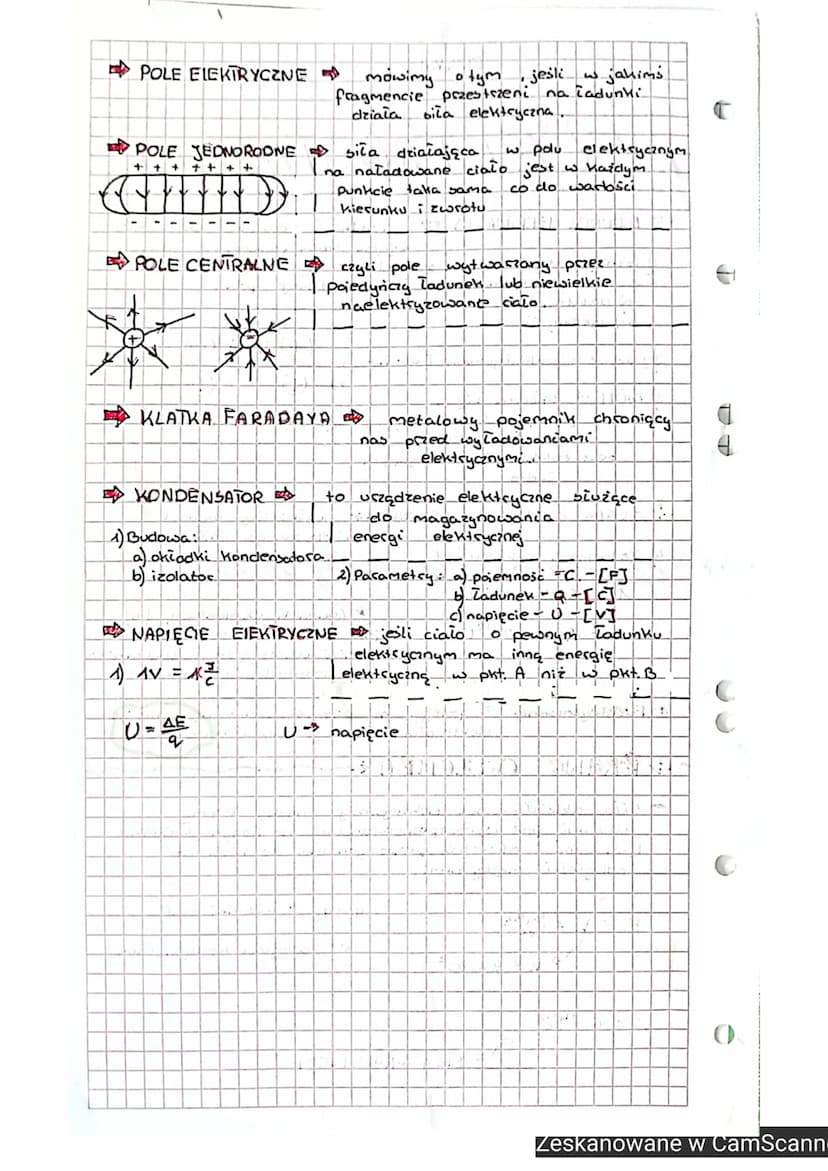 ⇨ POLE ElEKTRYCZNE ⇨ mówimy o tym, jeśli w jakimś
fragmencie przestrzeni na ładunki
działa siła elektryczna.
⇨ POLE JEDNORODNE ⇨ siła działająca w polu elektrycznym
+ + + + + + +
na naładowane ciało jest w każdym
punkcie taka sama co do wartości
kierunku i zwrotu
- - - - - - -
⇨ POLE CENTRALNE ⇨ czyli pole wytwarzany przez
pojedyńczy ładunek lub niewielkie
naelektryzowane ciało.
+ -
⇨ KLATKA FARADAYA ⇨ metalowy pojemnik chroniący
nas przed wyładowaniami
elektrycznymi.
⇨ KONDENSATOR ⇨ to urządzenie elektryczne służące
do magazynowania
1) Budowa: energi elektrycznej
a) okładki kondensatora
b) izolator 2) Parametry: a) pojemność - C - [F]
b) ładunek - q - [C]
c) napięcie - U - [V]
⇨ NAPIĘCIE ElEKTRYCZNE ⇨ jeśli ciało o pewnym ładunku
elektrycznym ma inną energię
1) 1V = 1 J/C elektryczną w pkt. A niż w pkt. B
U = ΔE/q U → napięcie
Zeskanowane w CamScann